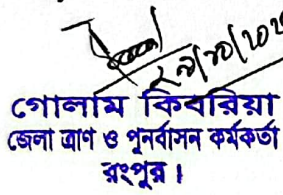 গোলাম কিবরিয়া
জেলা ত্রাণ ও পুনর্বাসন কর্মকর্তা
রংপুর।